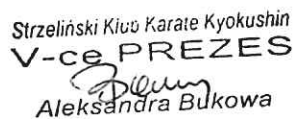 Strzeliński Klub Karate Kyokushin
V-ce PREZES
Aleksandra Bukowa